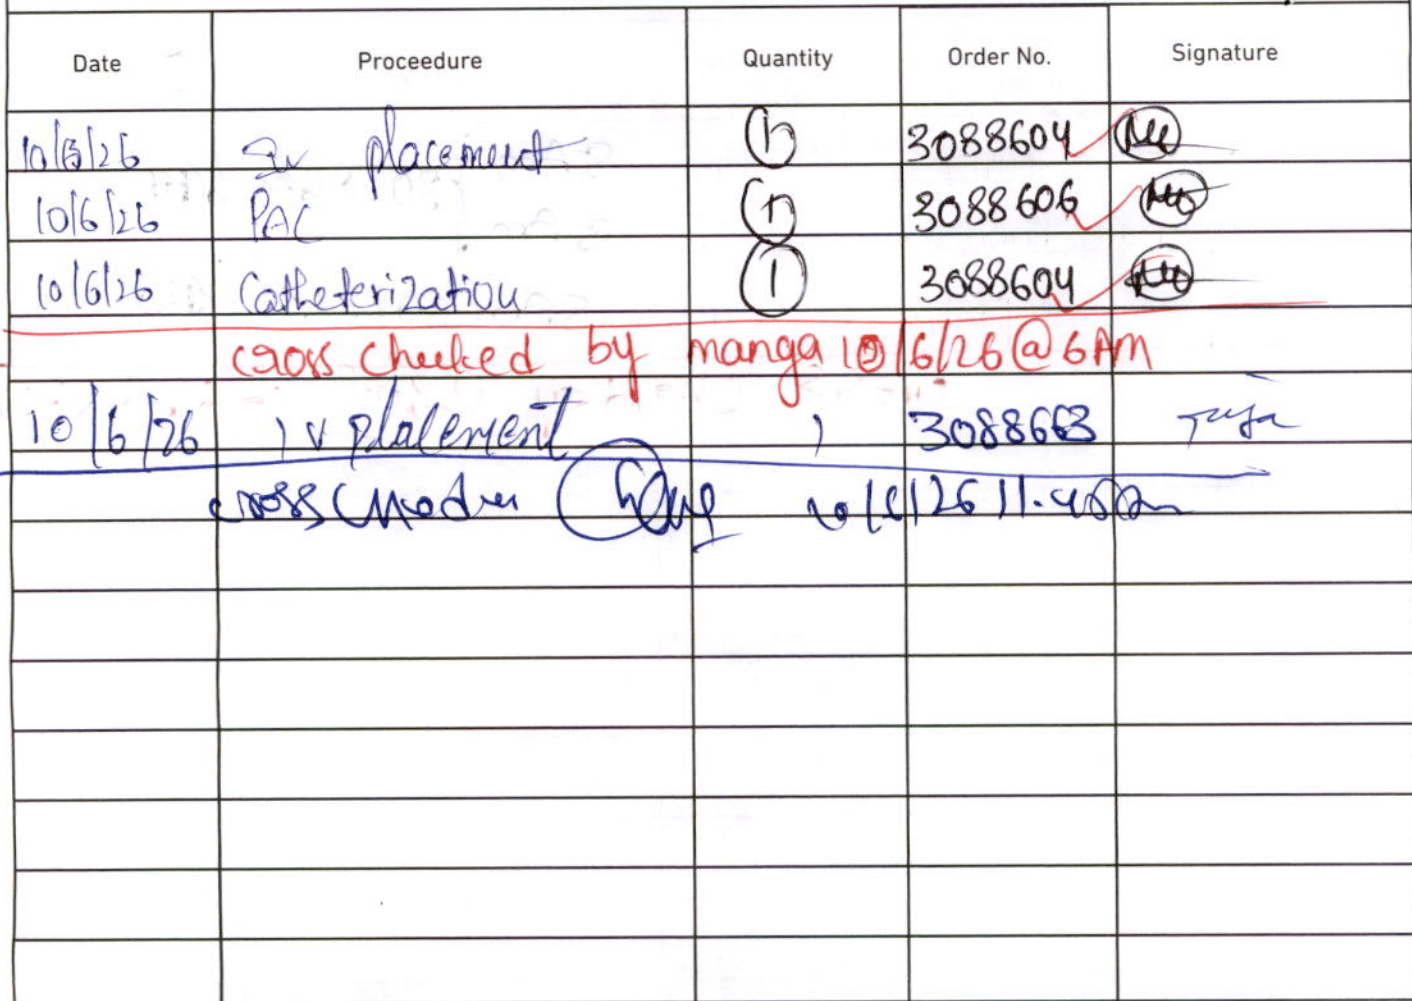 Date Proceedure Quantity Order No. Signature
10/6/26 Iv placement 1 3088604
10/6/26 PAC 1 3088606
10/6/26 Catheterization 1 3088604
cross checked by manga 10/6/26 @ 6AM
10/6/26 iv placement 1 3088663
cross 10/6/26 11.45